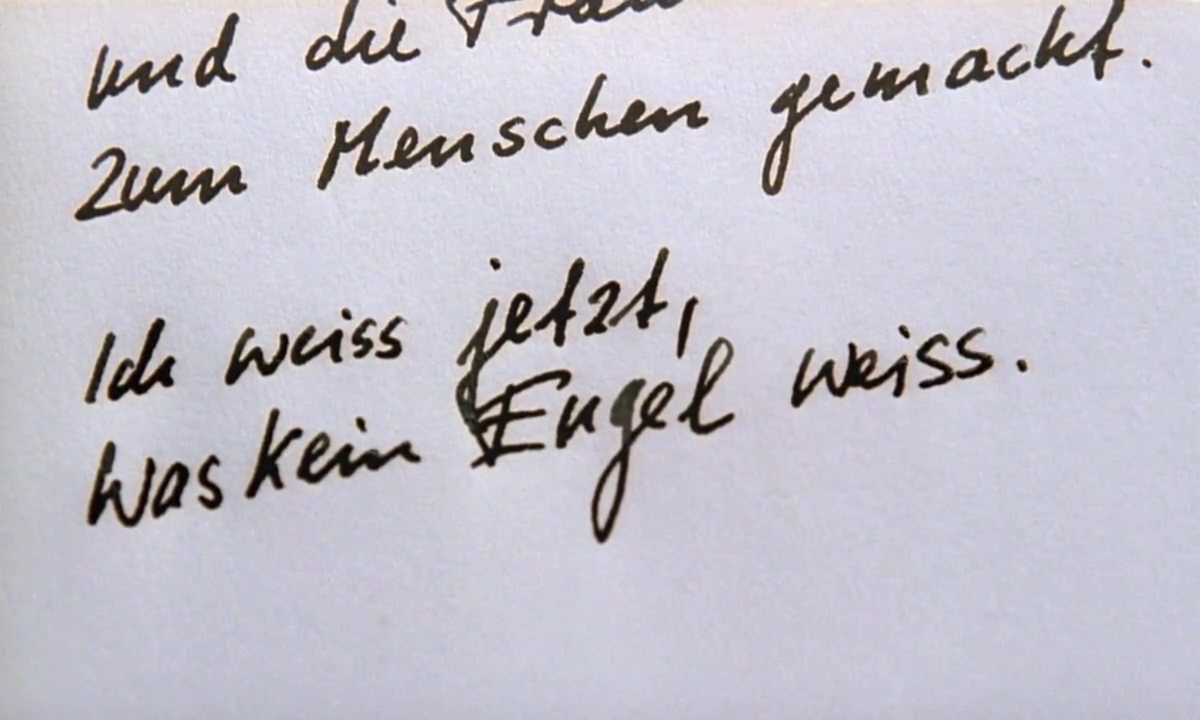 und die Frau
Zum Menschen gemacht.
Ich weiss jetzt,
was kein Engel weiss.